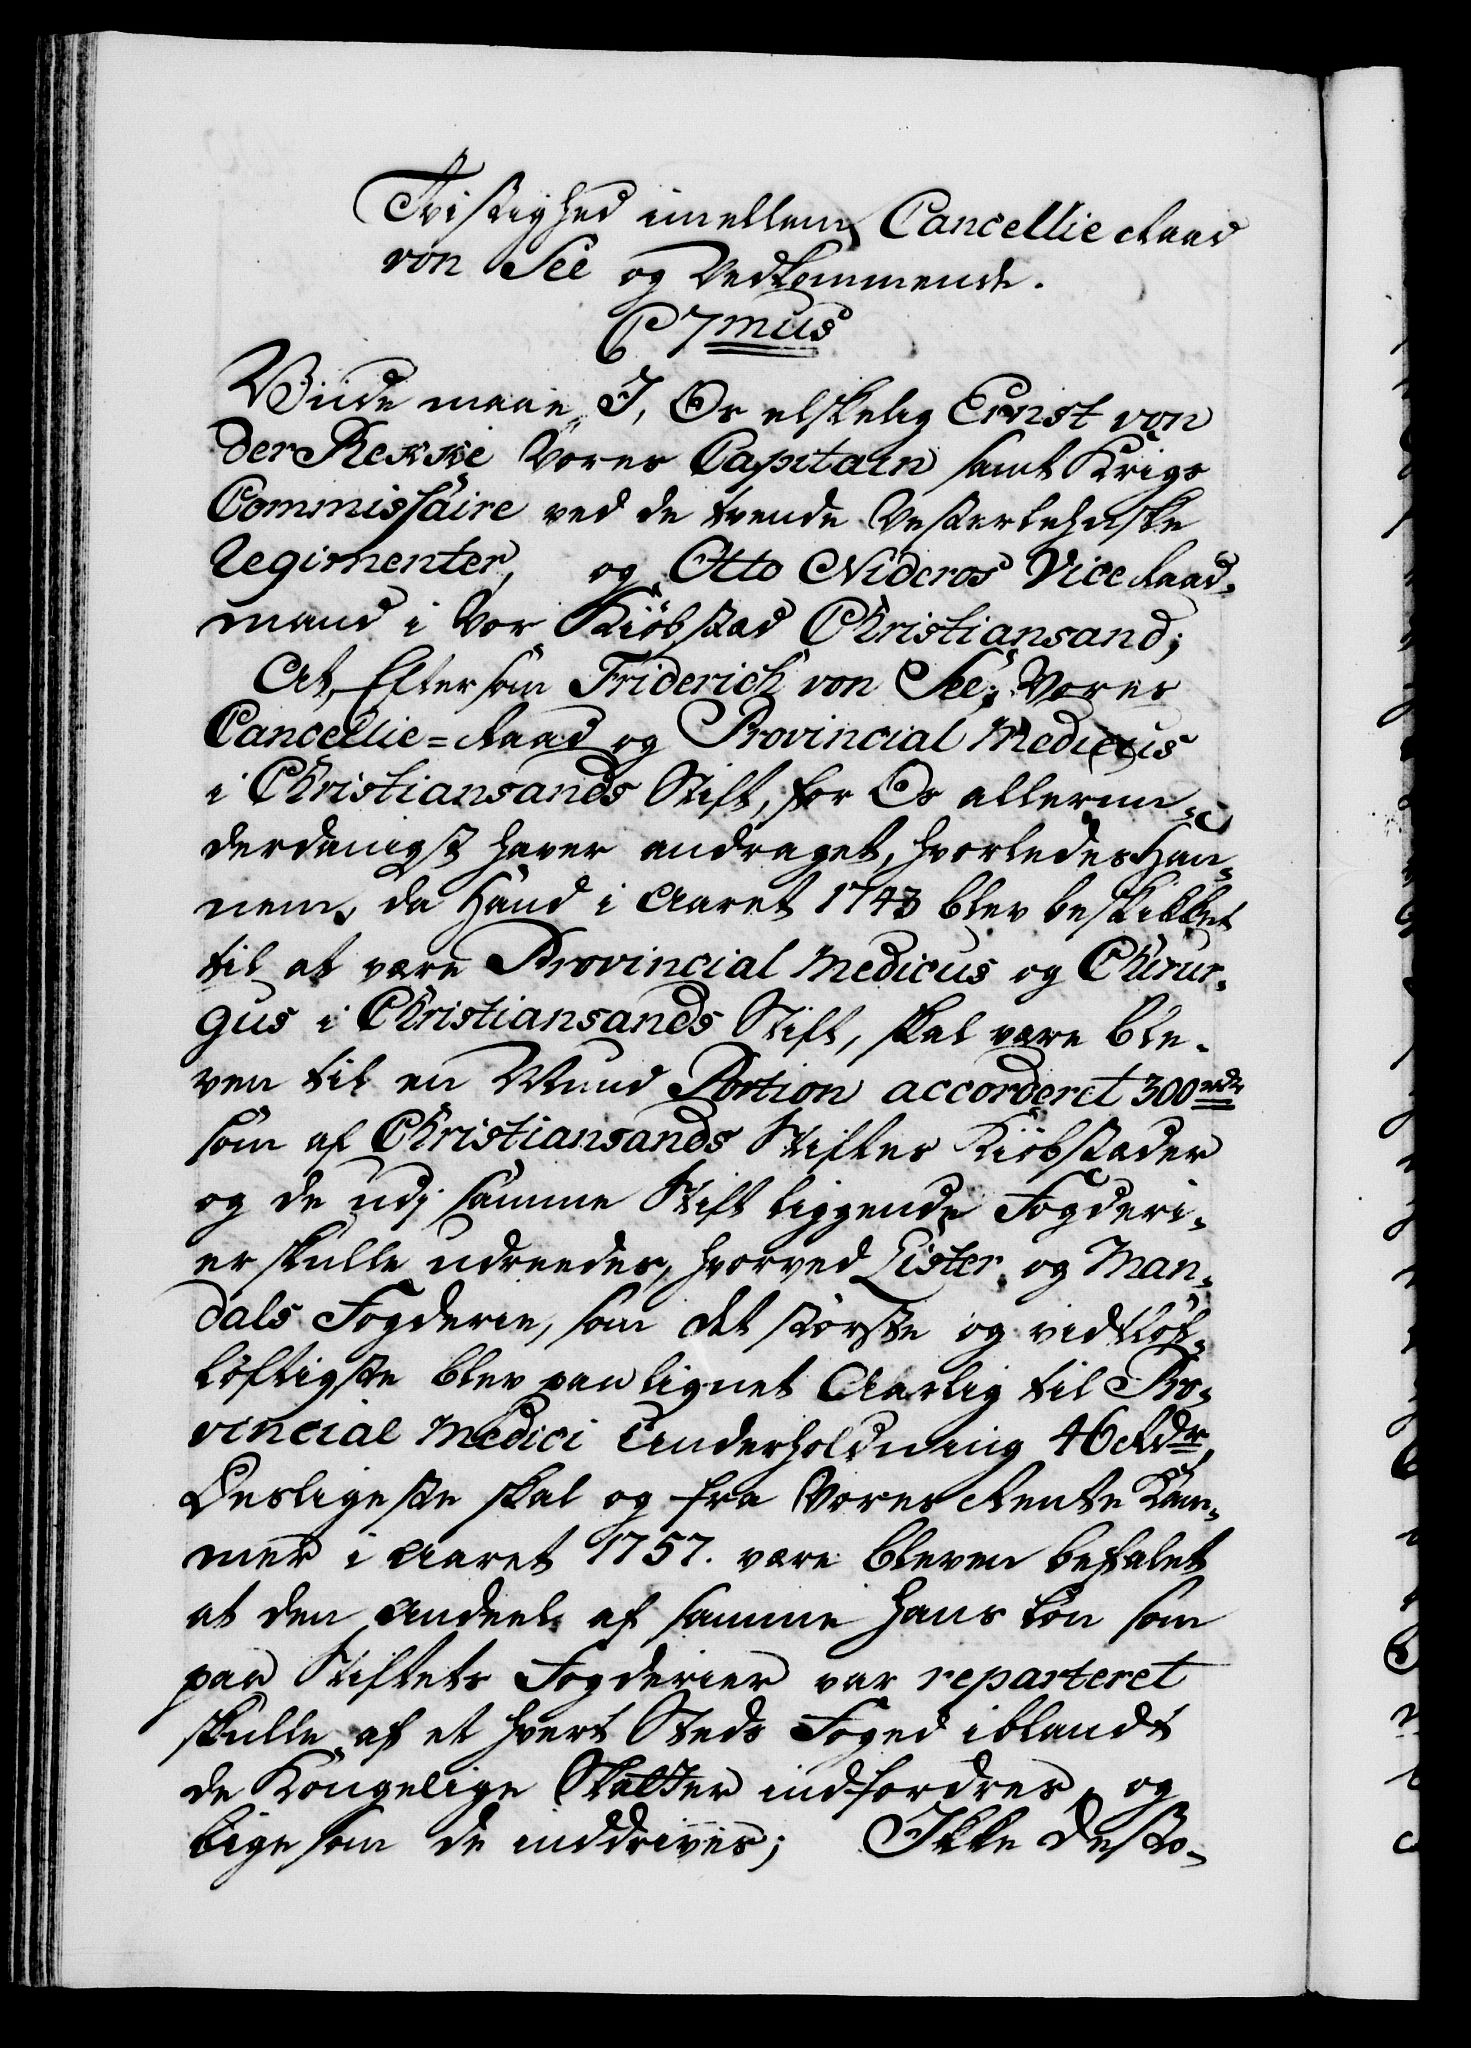 Tvistighed imellem Cancellie Raad
von See og Vedkommende.
C 7mus
Viide maae I, Os elskelig Ernst von
der Rekke Vores Capitain samt Krigs
Commissaire ved de tvende Vesterlehnske
Regimenter, og Otto Nideros Vice Raad-
mand i Vor Kiöbstad Christiansand;
At, Eftersom Friderich von See, Vores
Cancellie=Raad og Provincial Medicus
i Christiansands Stift, for Os allerun-
derdanigst haver andraget, hvorledes Han-
nem, da Hand i Aaret 1743 blev beskikket
til at være Provincial Medicus og Chirur-
gus i Christiansands Stift, skal være ble-
ven til en Mund Portion accorderet 300 rdr
som af Christiansands Stifts Kiöbstæder
og de udj samme Stift liggende Fogderi-
er skulle udreedes, hvorved Lister og Man-
dals Fogderie, som det störste og vidtlöf-
löftigste blev paalignet Aarlig til Pro-
vincial Medici Underholdning 46 Rdr,
Desligeste skal og fra Vores Rente Kam-
mer i Aaret 1757. være bleven befalet
at den Andeel af samme hans Lön som
paa Stiftets Fogderier var reparteret
skulle af et hvert Steds Foged iblandt
de Kongelige Skatter indfordres, og
lige som de inddrives; Ikke desto-